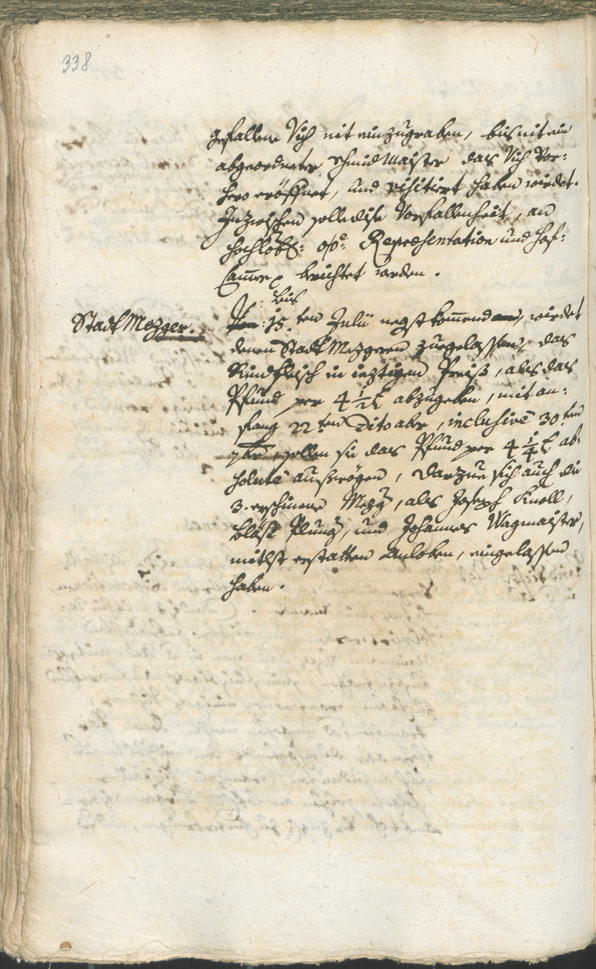 338
gefallene Vich nit einzugraben, bis nit ein
abgeordneter Schmidmaister das Vich vor=
hero eröffnet, und visitiert haben wirdet.
Inzwischen solle dise Vorfallenheit, an
Hochlöbl: o:ö: Repræsentation und Hof=
Cammer berichtet werden.
Stadt Mezger.
bis
15.ten Julii negst kommend, wirdet
denen Stadt Mezgeren zuegelassen, das
Rindfleisch in ieztigen Preiß, als das
Pfund per 4 1/2 x abzugeben, mit an=
fang 22ten Dito aber, inclusive 30.ten
7bris, sollen sie das Pfund per 4 1/4 x ab=
solute außwögen, Darzue sich auch die
3. erschinene Mezg:, als Joseph Knoll,
Bläsi Plung, und Johannes Wagmaister,
mitlst erstatten Anloben, eingelassen
haben.